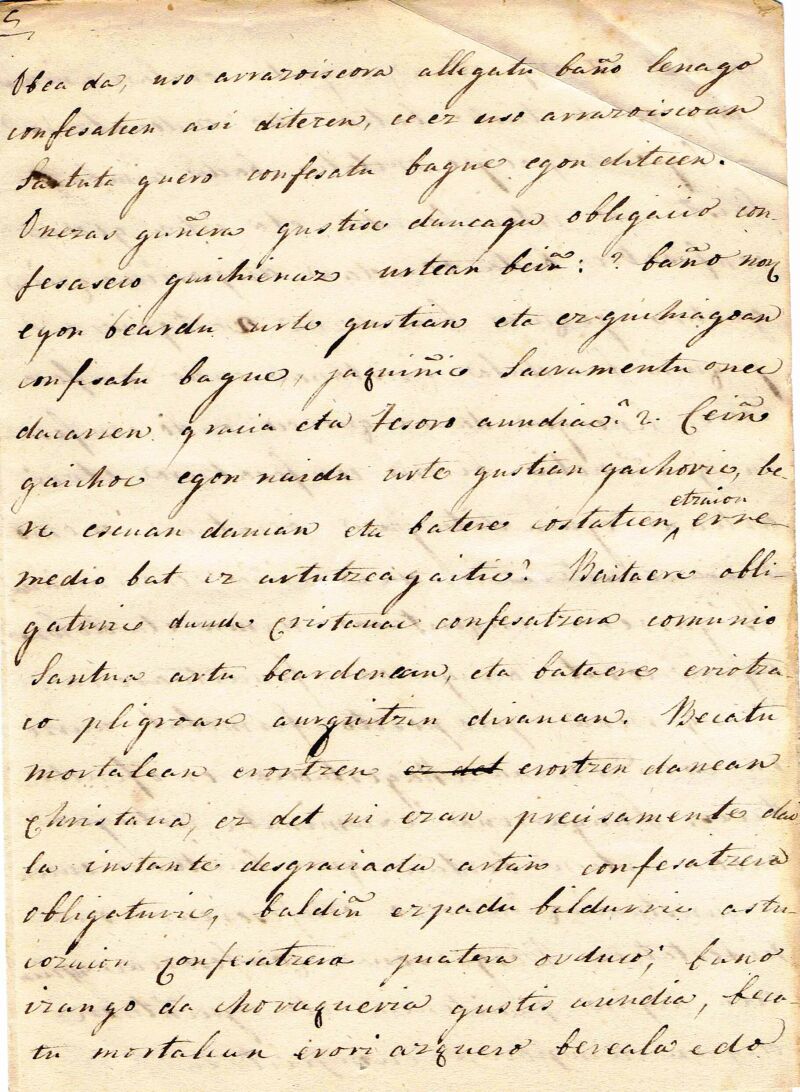 5
Obea da, uso arrazoiscora allegatu baño lenago
confesatien asi diteren, ce ez uso arrazoiscoan
Sartuta guero confesatu bague egon ditecen.
Onezas gañera gustioc daucagu obligacio con-
fesasceco guichienaz urtean beiñ: ? baño nox
egon beardu urte gustian eta ez guichiagoan
confesatu bague, jaquiñic Sacramentu onec
dacarren gracia eta Tesoro aundiac? Ceiñ
gaichoc egon naidu urte gustian gachoric, be-
re escuan daucan eta batere costatien etzaion erre-
medio bat ez artutzeagaitic? Baitaere obli-
gaturic daude cristauac confesatzera comunio
Santua artu beardenean, eta bataere eriotza-
co pligroan aurquitzen diranean. Becatu
mortalean erortzen ez det erortzen danean
Christaua, ez det ni ezan precisamente dau
la instante desgraciadu artan confesatzera
obligaturic, baldiñ ezpadu bildurric astu-
cozaion confesatzera juatera orduco; bano
izango da choraqueria gustis aundia, beca-
tu mortalean erori azquero bereala edo